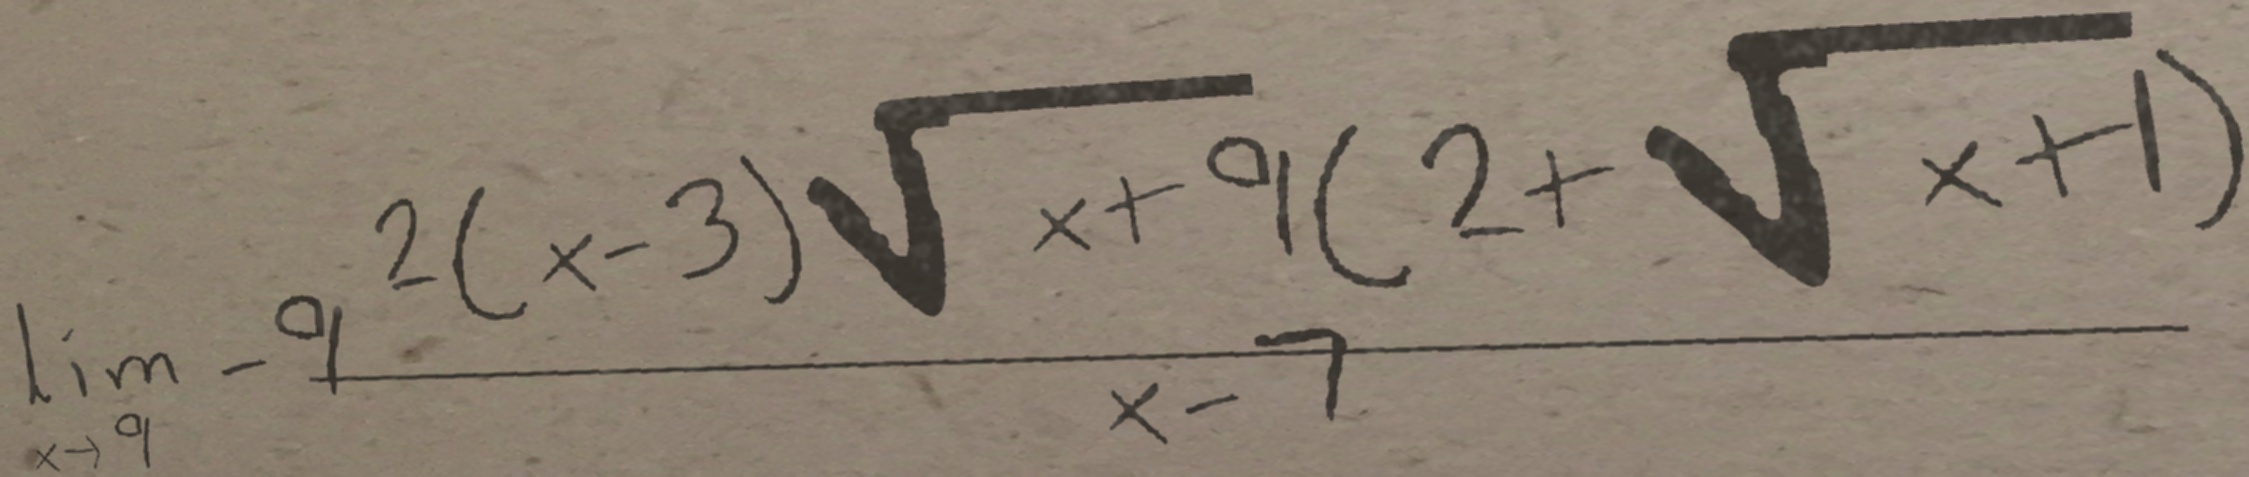 \lim_{x \to 9} -9 \frac{2(x-3)\sqrt{x+9}(2+\sqrt{x+1})}{x-7}